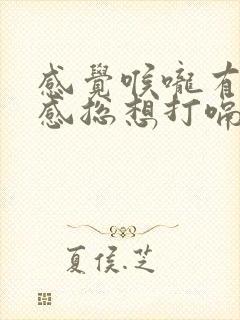 感覺喉嚨有
感總想打嗝
夏侯.芝